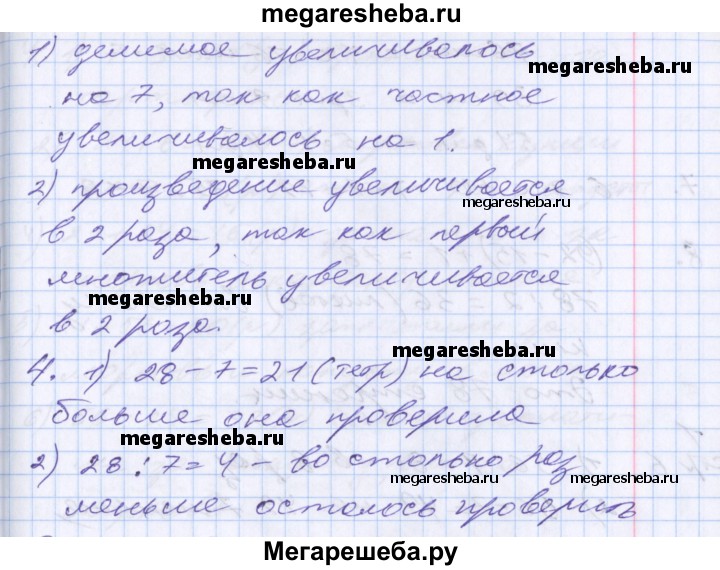 megaresheba.ru
1) делимое увеличивалось
megaresheba.ru
на 7, так как частное
увеличивалось на 1.
megaresheba.ru
2) произведение увеличивается
megaresheba.ru
в 2 раза, так как первый
множитель увеличивается
megaresheba.ru
в 2 раза.
megaresheba.ru
4. 1) 28 - 7 = 21 (тетр) на столько
больше она проверила
megaresheba.ru
2) 28 : 7 = 4 - во столько раз
megaresheba.ru
меньше осталось проверить
Мегарешеба.ру